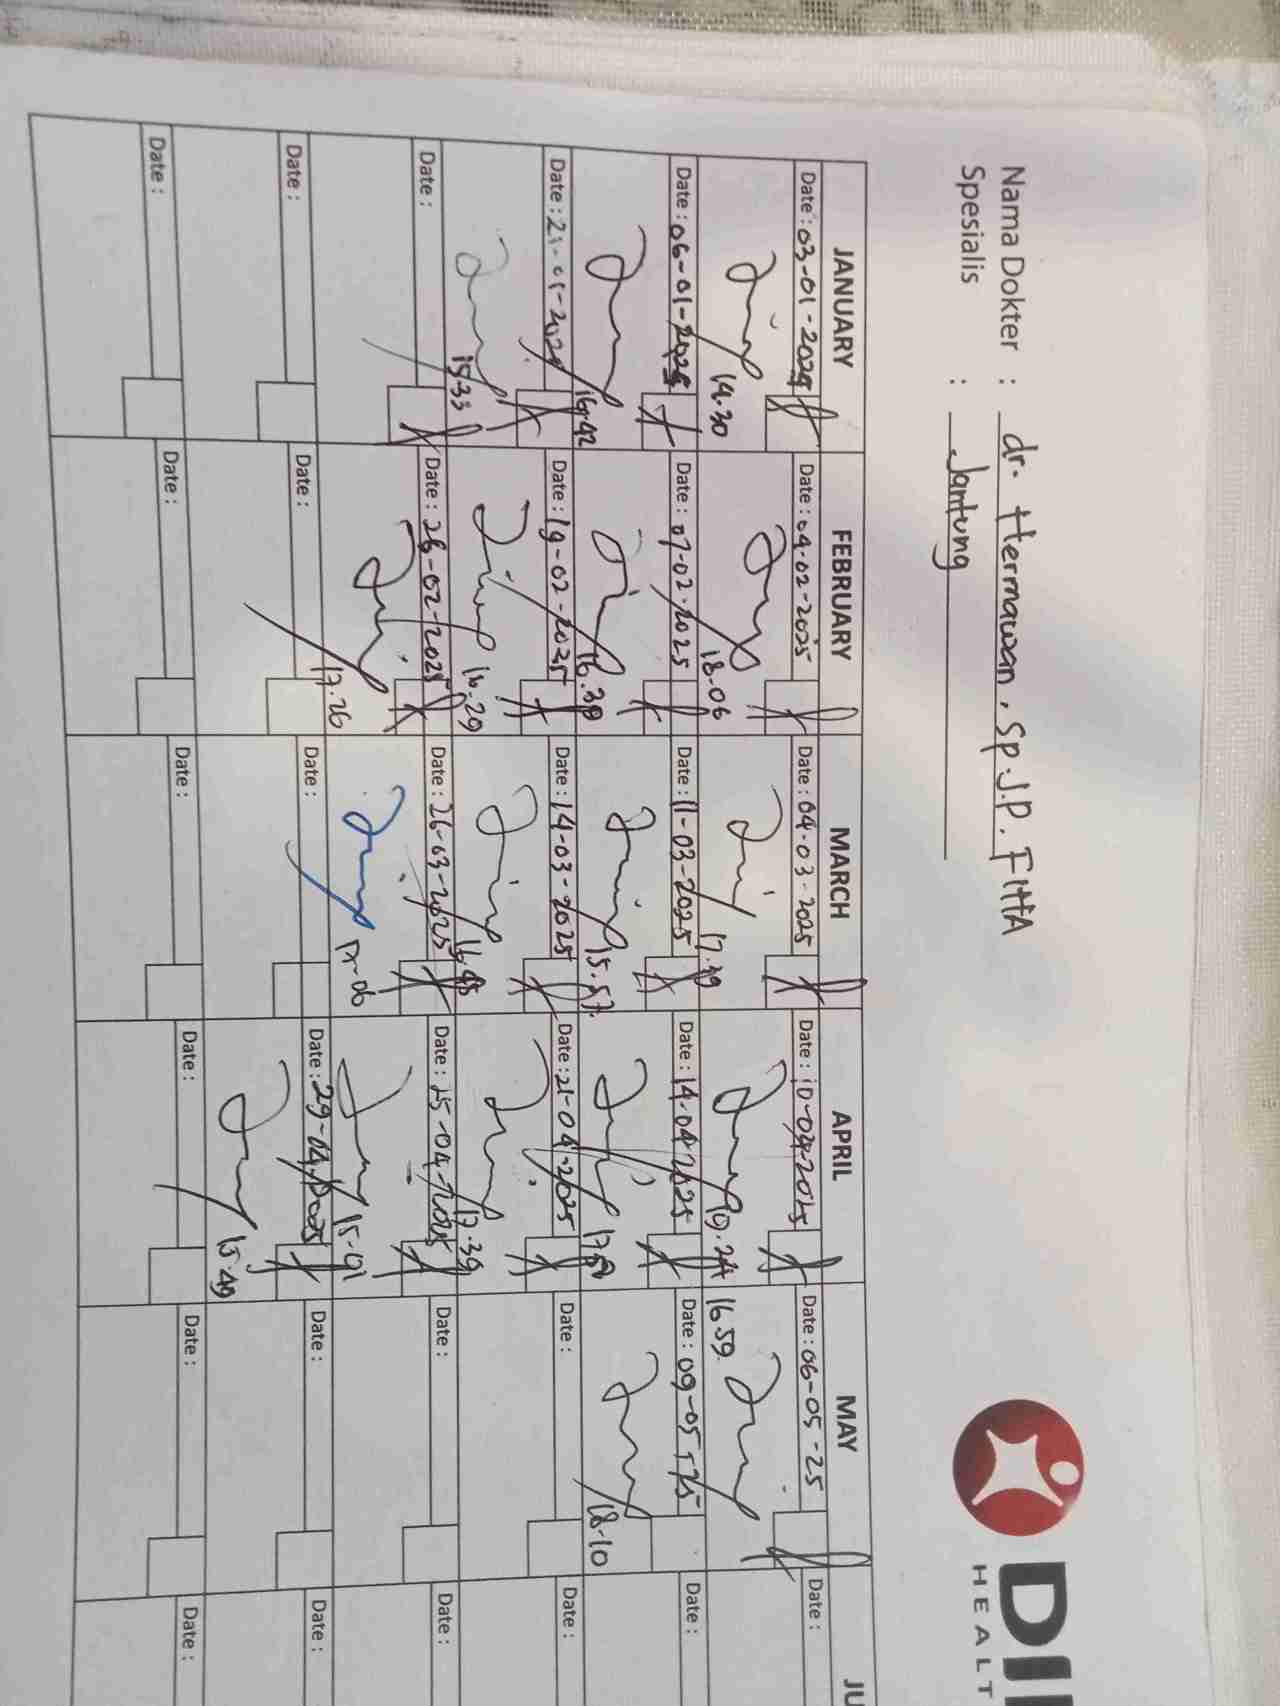 Nama Dokter : dr. Hermawan, Sp.J.P. FIHA
Spesialis : Jantung
DI
HEALT
JANUARY FEBRUARY MARCH APRIL MAY JU
Date : 03-01-2025 Date : 04-02-2025 Date : 04-03-2025 Date : 10-04-2025 Date : 06-05-25 Date :
14.30 18.06 17.39 19.24 16.59
Date : 06-01-2025 Date : 07-02-2025 Date : 11-03-2025 Date : 14-04-2025 Date : 09-05-25 Date :
16.42 16.30 15.57 18.10
Date : 21-01-2025 Date : 19-02-2025 Date : 14-03-2025 Date : 21-04-2025 Date : Date :
15.33 16.29 16.45 17.39
Date : Date : 26-02-2025 Date : 26-03-2025 Date : 25-04-2025 Date : Date :
17.26 15.01
Date : Date : Date : Date : 29-04-2025 Date : Date :
15.49
Date : Date : Date : Date : Date : Date :